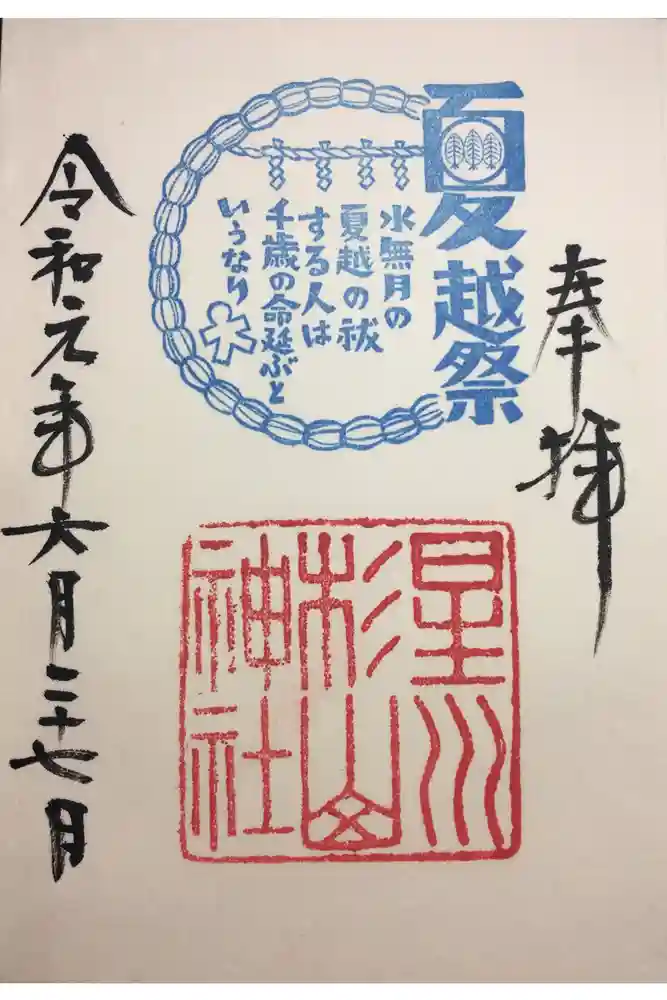 奉拝
夏越祭
水無月の
夏越の祓
する人は
千歳の命延ぶと
いうなり
星川
杉山
神社
令和元年六月二十七月